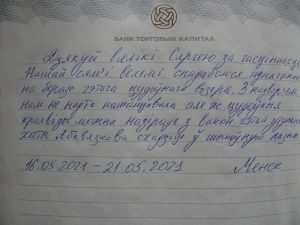 БАНК ТОРГОВЫЙ КАПИТАЛ
Дзякуй вялікі Сяргею за гасціннасць
Нашай сям'і вельмі спадабаўся адпачынак
на беразе гэтага цудоўнага возера. З надвор'ем
нам не надта пашанцавала але ж цудоўныя
краявіды можна назіраць з вакон гэтай утульнай
хаты Абавязкова сходзіце ў
16.05.2021 – 21.05.2021 Менск